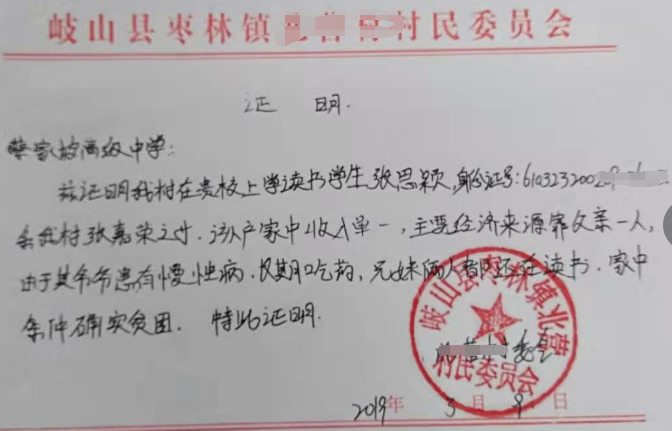 岐山县枣林镇 村民委员会
证 明.
蔡家坡高级中学:
兹证明我村在贵校上学读书学生张思颖,身份证号:6103232002
系我村张嘉荣之女.该户家中收入单一,主要经济来源靠父亲一人,
由于其爷爷患有慢性病,长期吃药,兄妹俩人都还在读书.家中
条件确实贫困. 特此证明.
岐山县枣林镇北营
村民委员会
村委会
2019年 3月 9日